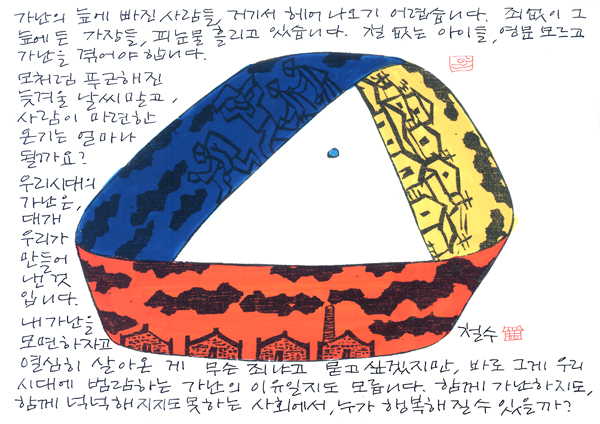 가난의 늪에 빠진 사람들, 거기서 헤어 나오기 어렵습니다. 죄없이 그
늪에 든 가장들, 피눈물 흘리고 있습니다. 철 없는 아이들, 영문 모르고
가난을 겪어야 합니다.
모처럼 푸근해진
늦겨울 날씨 말고,
사람이 마련한
온기는 얼마나
될까요?
우리시대의
가난은,
대개
우리가
만들어
낸 것
입니다.
내 가난을
모면하자고
열심히 살아온 게 무슨 죄냐고 묻고 싶겠지만, 바로 그게 우리
시대에 범람하는 가난의 이유일지도 모릅니다. 함께 가난하지도,
함께 넉넉해지지도 못하는 사회에서, 누가 행복해질 수 있을까?
철수